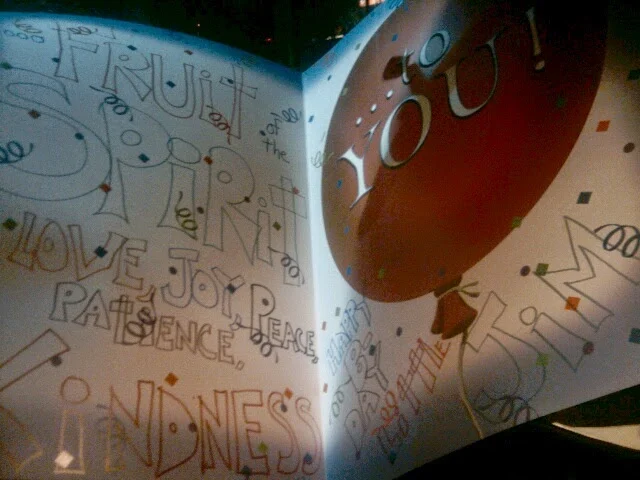 FRUiT
of the
SPiRiT
LOVE, JOY, PEACE,
PATIENCE,
KiNDNESS
...to
YOU!
JiM
HAPPY
BiRTHDAY